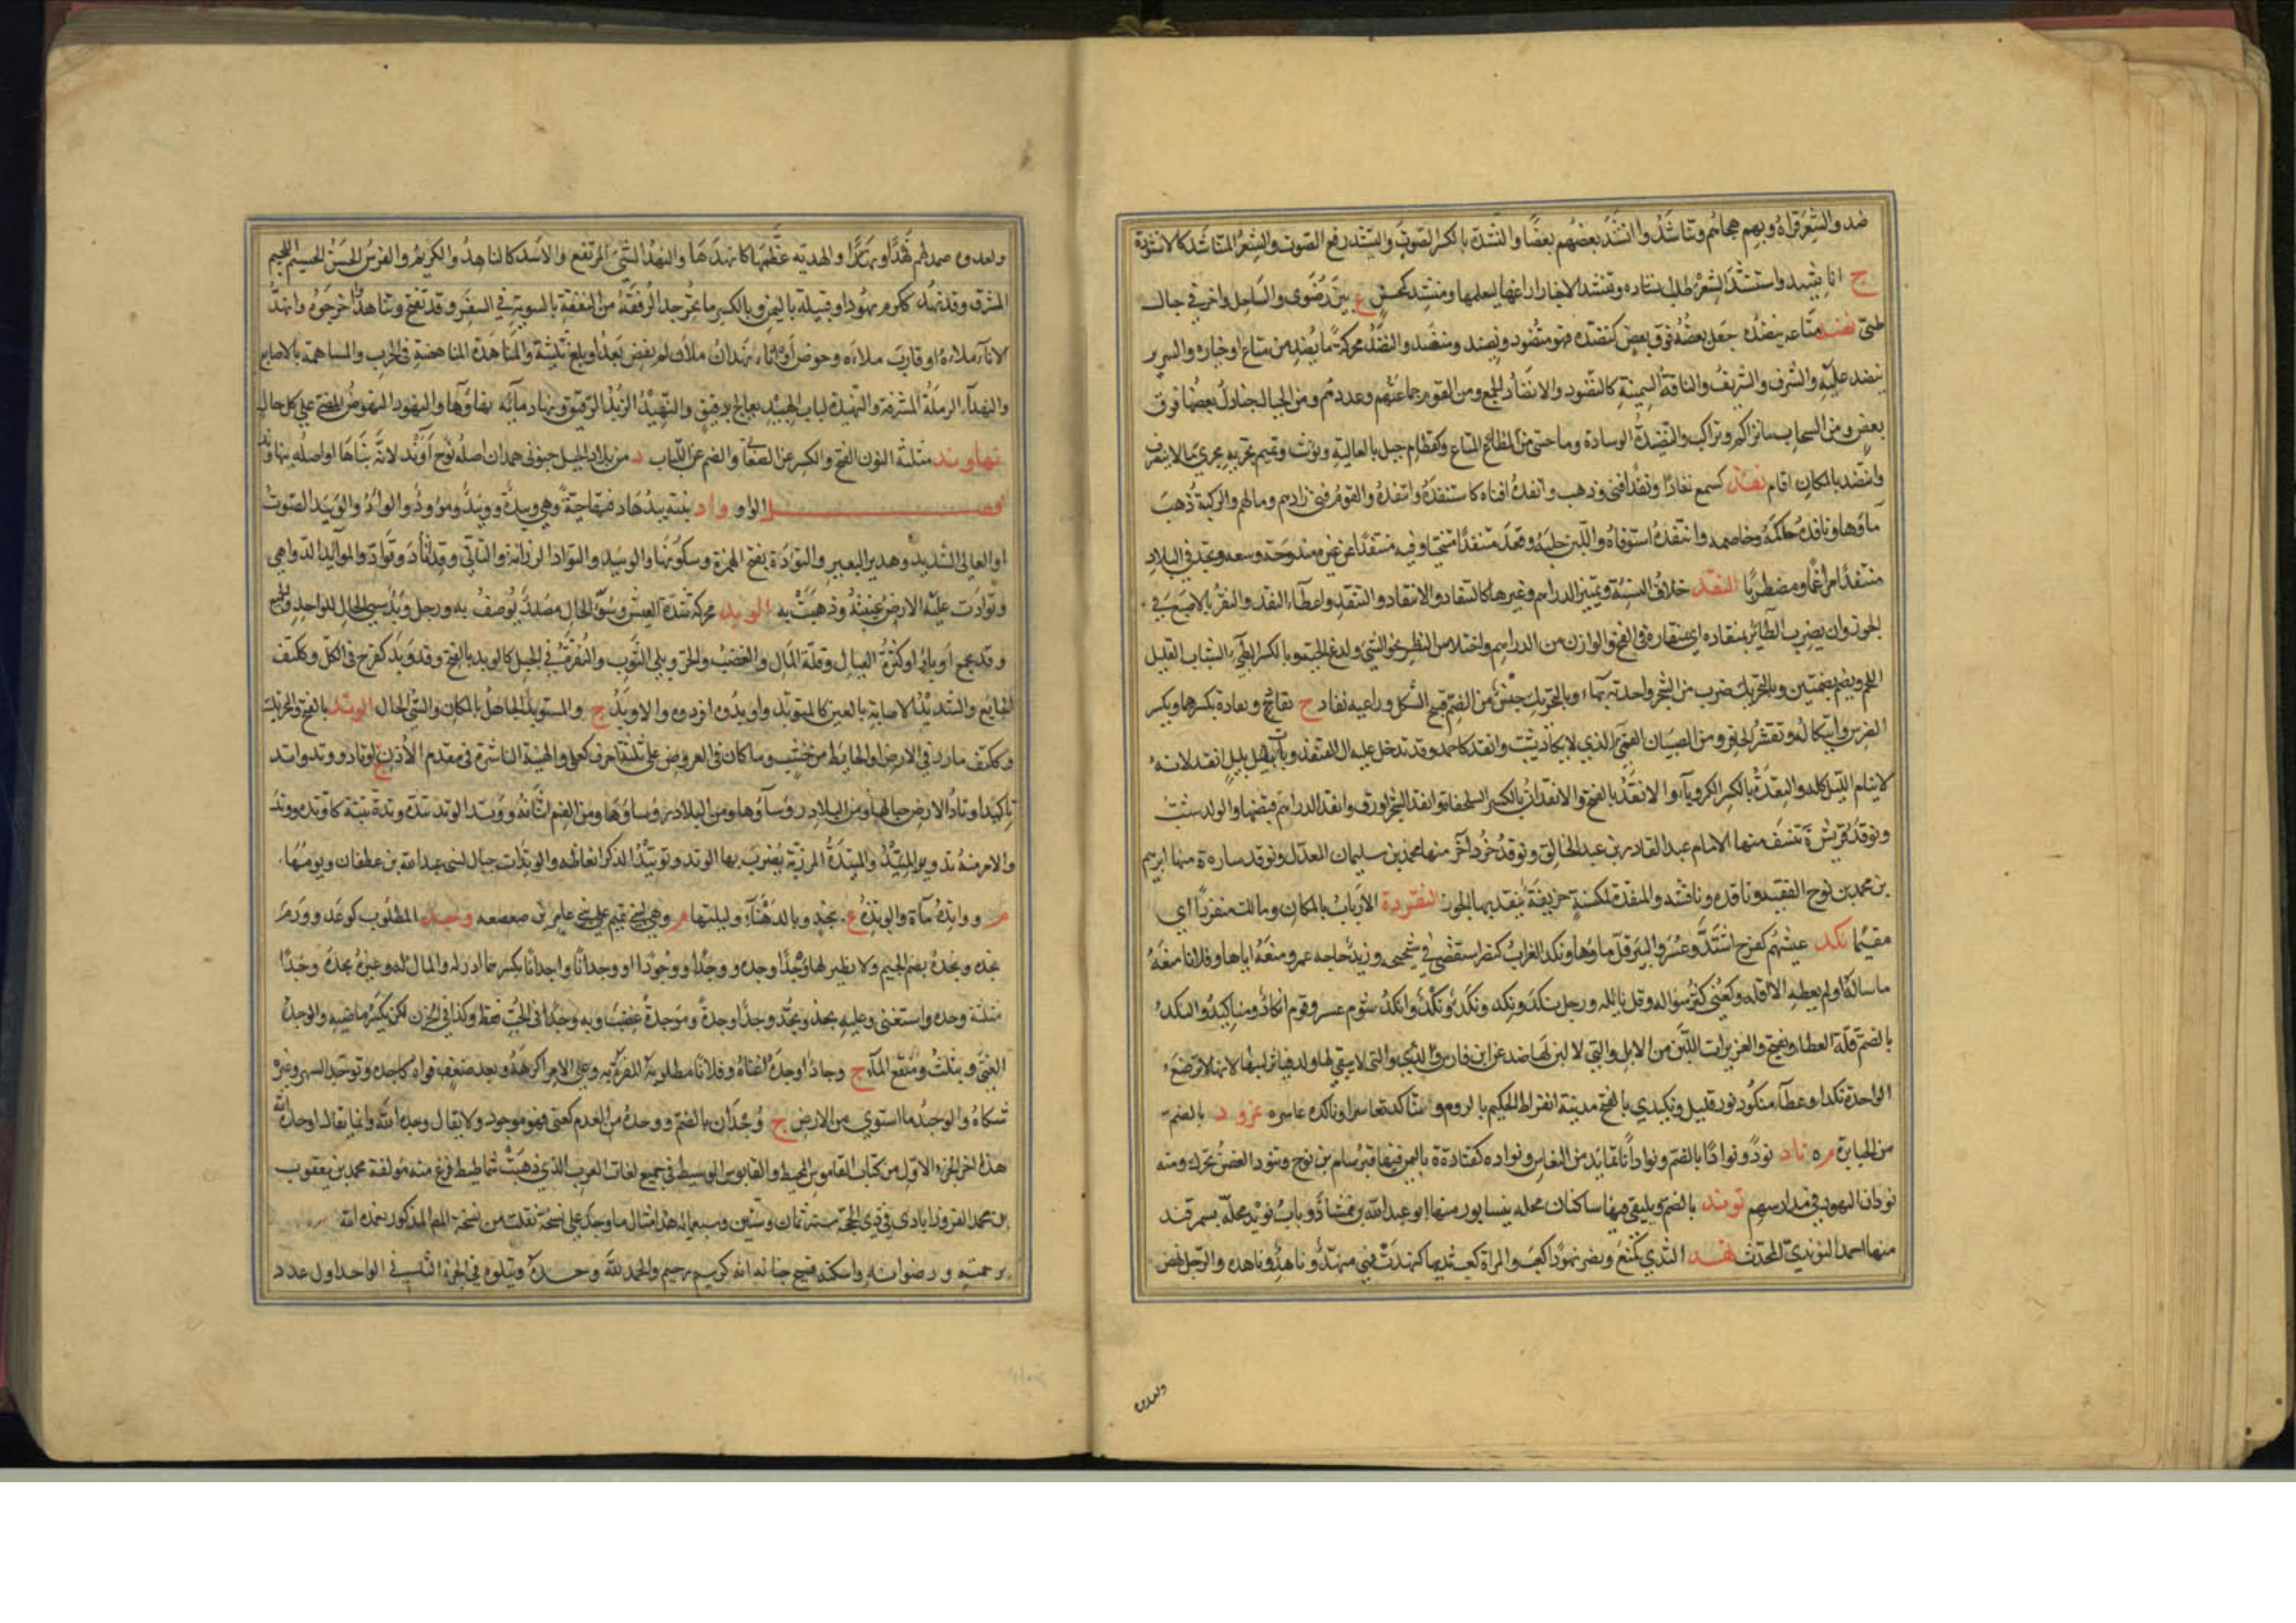 ضد والشعر قراه وبهم هجاهم وتناشدوا انشد بعضهم بعضا والنشدة بالكسر الصوت والنشيد رفع الصوت والشعر المتناشد كالانشودة
ج اناشيد واستنشد الشعر طلب انشاده وتنشد الاخبار اراغها ليعلمها ومنشد كمحسن ع بين رضوى والساحل واخر في جبال
طيئ نضد متاعه ينضده جعل بعضه فوق بعض كنضده فهو منضود ونضيد ومنضد والنضد محركة ما نضد من متاع او خياره والسرير
ينضد عليه والشرف والشريف والناقة السمينة كالنضود والانضاد الجمع ومن القوم جماعتهم وعددهم ومن الجبال جنادل بعضها فوق
بعض ومن السحاب ما تراكم وتراكب والنضيدة الوسادة وما حشى من المتاع وكقطام جبل بالعالية ويؤنث وتميم تجريه مجرى ما لا ينصرف
وانتضد بالمكان اقام نفد كسمع نفادا ونفدا فنى وذهب وانفده افناه كاستنفده وانتفده والقوم فنى زادهم ومالهم والركية ذهب
ماؤها ونافده حاكمه وخاصمه وانتفده استوفاه واللبن حلبه وقعد منتفدا متنحيا وفيه منتفد عن غيره مندوحة وسعه وتجد في البلاد
منتفدا مراغما ومضطربا النقد خلاف النسئة وتمييز الدراهم وغيرها كالتنقاد والانتقاد والتنقد واعطاء النقد والنقر بالاصبع في
الجوز وان يضرب الطائر بمنقاده اي منقاره في الفخ والوازن من الدراهم واختلاس النظر نحو الشيء ولدغ الحية وبالكسر البطيء الشباب القليل
اللحم ويضم وبضمتين وبالتحريك ضرب من الشجر واحدته بهاء وبالتحريك جنس من الغنم قبيح الشكل وراعيه نقاد ج نقاد ونقادة بكسرهما وتكسر
الضرس وائتكاله وتقشر الحافر ومن الصبيان القمي الذي لا يكاد يشب وانقد كاحمد وقد تدخل عليه ال القنفذ وبات بليل انقد لانه
لا ينام الليل كله والنقدة بالكسر الكروياء والانقد بالفتح والانقدان بالكسر السلحفاة وانقد الشجر اورق وانتقد الدراهم قبضها والولد شب
ونوقد قريش ة بنسف منها الامام عبد القادر بن عبد الخالق ونوقد خرداخر منها محمد بن سليمان المعدل ونوقد ساره ة منها ابرهيم
بن محمد بن نوح الفقيه وناقده ناقشه والمنقدة كمكنسة خزيفة ينقد بها الجوز النقردة الارباب بالمكان وما لت منقردا اي
مقيما نكد عيشهم كفرح اشتد وعسر والبئر قل ماؤها ونكد الغراب كنصر استقصى في شحيجه وزيد حاجه عمرو منعه اياها وفلانا منعه
ما ساله او لم يعطه الا اقله وكعنى كثر سؤاله وقل نائله ورجل نكد ونكد ونكد ونكد وانكد شؤم عسر وقوم انكاد ومناكيد والنكد
بالضم قلة العطاء ويفتح والغزيرات اللبن من الابل والتي لا لبن لها ضد عن ابن فارس والتي لا يبقى لها ولد فيكثر لبنها لانها لا ترضع
الواحدة نكدا وعطاء منكود نزر قليل ونكيدى بالفتح مدينة ابقراط الحكيم بالروم وتناكدا تعاسرا وناكده عاسره نمرود بالضم
من الجبابرة م ه ناد نودا ونوادا بالضم ونودانا تمايد من النعاس ونواده كقتادة ة باليمن فيها قبر سام بن نوح وتنود الغصن تحرك ومنه
نودان اليهود في مدارسهم نوند بالضم ويلتقي فيها ساكنان محله بنيسابور منها ابو عبد الله بن حمشاذ وباب نويد محلة بسمرقند
منها احمد النوندي المحدث نهد الثدي كمنع ونصر نهودا كعب والمراة كعب ثديها كنهدت فهي منهد وناهد وناهده والرجل نهض
ولعدوه صمد لهم نهدا ونهدا والهدية عظمها كانهدها والنهد الشيء المرتفع والاسد كالناهد والكريم والفرس الحسن الجسيم اللحيم
المشرف وقد نهد ككرم نهودا وقبيلة باليمن وبالكسر ما تخرجه الرفقة من النفقة بالسوية في السفر وقد تفتح وتناهدوا اخرجوه وانهد
الاناء ملاه او قارب ملاءه وحوض او اناء نهدان ملآن لم يفض بعد او بلغ ثلثيه والمناهدة المناهضة في الحرب والمساهمة بالاصابع
والنهداء الرملة المشرفة والنهيدة لباب الهبيد يعالج بدقيق والنهيد الزبد الرقيق ونهاد مائة نهاؤها والنهود النهوض على كل حال
نهاوند مثلثة النون الفتح والكسر عن الصغاني والضم عن اللباب د من بلاد الجبل جنوبى همدان اصله نوح آوند لانه بناها او اصله بنهاوند
فصل الواو واد بنته يئدها دفنها حية وهي وئيد ووئيدة وموؤدة والواد والوئيد الصوت
او العالي الشديد وهدير البعير والتؤدة بفتح الهمزة وسكونها والوئيد والتوآد الرزانة والتاني وقد اتاد وتواد والموائد الدواهي
وتوادت عليه الارض غيبته وذهبت به الوبد محركة شدة العيش وسوء الحال مصدر يوصف به ورجل وبد سيئ الحال للواحد والجمع
وقد يجمع اوبادا وكثرة العيال وقلة المال والغضب والحر وبلى الثوب والنقرة في الجبل كالوبد بالفتح وقد وبد كفرح في الكل وككتف
الجائع والشديد الاصابة بالعين كالمتوبد واوبدوه افردوه والاوبد ج والمستوبد الجاهل بالمكان والسيئ الحال الوتد بالفتح والتحريك
وككتف ما رز في الارض او الحائط من خشب وما كان في العروض على ثلثة احرف كعلى والهنية الناشزة في مقدم الاذن ج اوتاد ووتد واتد
تاكيد واوتاد الارض جبالها ومن البلاد رؤساؤها ومن الفم اسنانه ووتد الوتد يتده وتدا وتدة ثبته كاوتده ووتد
والامر منه تد والميتد والميتدة المرزبة يضرب بها الوتد وتوتيد الذكر انعاظه والوتدات جبال لبنى عبد الله بن غطفان ويوم منها
م ووادة ماة والوتدة ع بنجد وبالدهناء وليلتها م وهي لبني تميم على بني عامر بن صعصعه وجد المطلوب كوعد وورم
يجده ويجده بضم الجيم ولا نظير لها وجدا وجدة ووجدا ووجودا ووجدانا واجدانا بكسرهما ادركه والمال وغيره يجده وجدا
مثلثة وجدة استغنى وعليه يجد ويجد وجدا وجدة وموجدة غضب وبه وجدا في الحب فقط وكذا في الحزن لكن يكسر ماضيه والوجد
الغنى ويثلث ومنقع الماء ج وجاد واوجده اغناه وفلانا مطلوبه اظفره به وعلى الامر اكرهه وبعد ضعف قواه كاجده وتوجد السهر وغيره
شكاه والوجد ما استوى من الارض ج وجدان بالضم ووجد من العدم كعنى فهو موجود ولا يقال وجده الله وانما يقال اوجده الله
هذا اخر الجزء الاول من كتاب القاموس المحيط والقابوس الوسيط في جميع لغات العرب الذي ذهبت شماطيط فرغ منه مؤلفه محمد بن يعقوب
بن محمد الفيروزابادى في ذي الحجة سنة ثمان وستين وسبعمائة هذا مثال ما وجد على نسخة نقلت من نسخة المذكور تغمده الله
برحمته ورضوانه واسكنه فسيح جنانه انه كريم رحيم والحمد لله وحده ويتلوه في الجزء الثاني الواحد اول عدد
ولعدوه